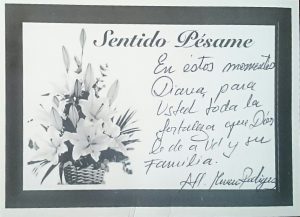 Sentido Pésame
En éstos momentos
Diana, para
Usted toda la
fortaleza que Dios
le dé a Ud y su
Familia.
Att.